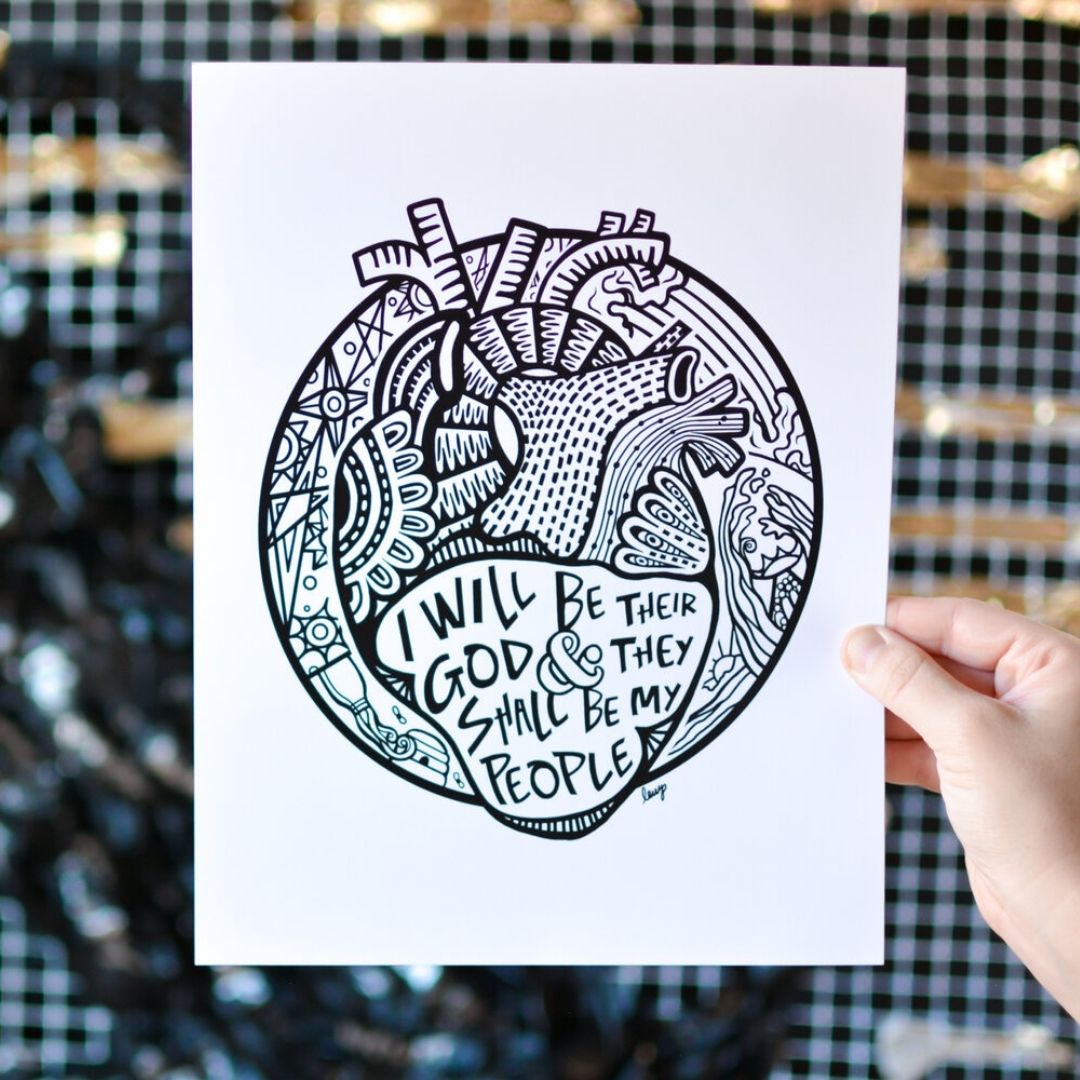 I WILL BE THEIR
GOD & THEY
SHALL BE MY
PEOPLE